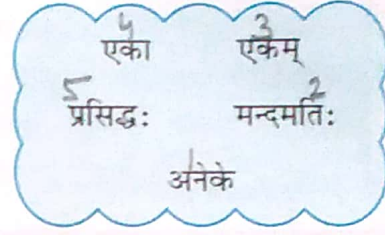 4 3
एका एकम्
5 2
प्रसिद्धः मन्दमतिः
1
अनेके